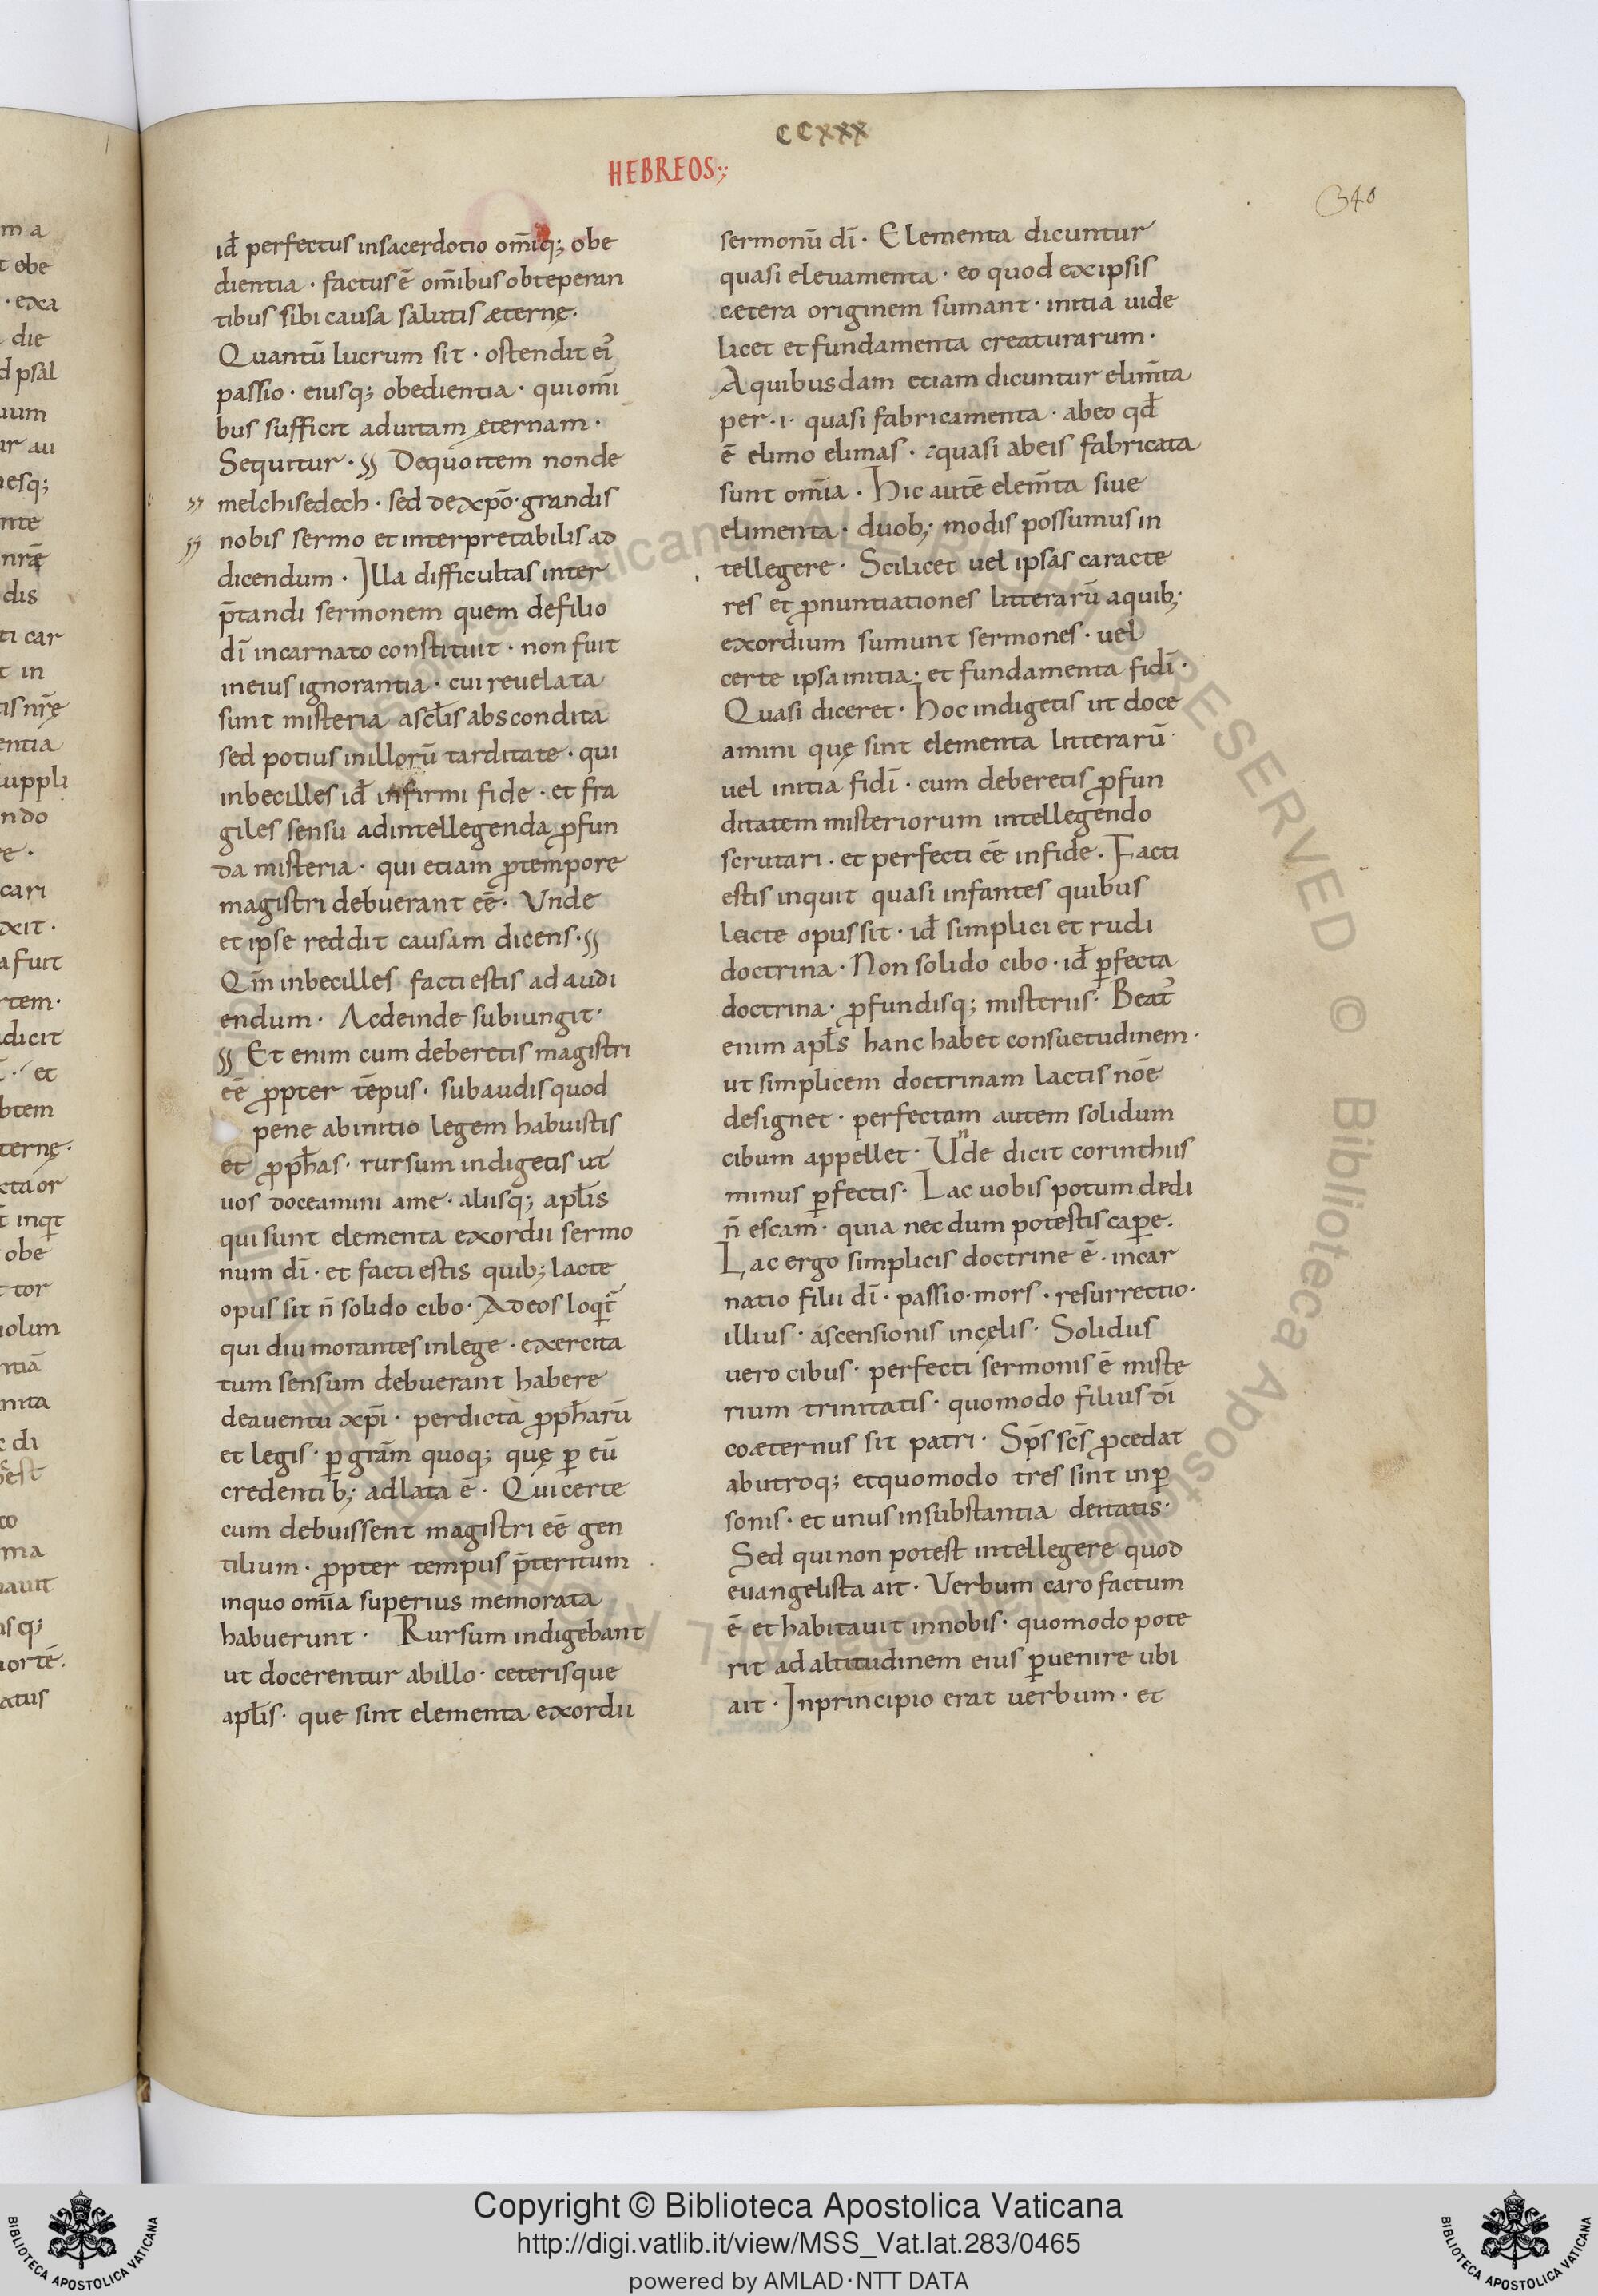 CCXXX
HEBREOS;
340
id̄ perfectus insacerdotio om̄iq; obe
dientia · factus ē om̄ibus obteperan
tibus sibi causa salutis æternę.
Quantū lucrum sit · ostendit ei᾽
passio · eiusq; obedientia · qui om̄i
bus sufficit aduitam ęternam ·
Sequitur · Dequo item nonde
melchisedech · sed dexp̄o · grandis
nobis sermo et interpretabilis ad
dicendum · Illa difficultas inter
p̄tandi sermonem quem defilio
dī incarnato constituit · non fuit
ineius ignorantia · cui reuelata
sunt misteria asc̄lis abscondita
sed potius inillorū tarditate · qui
inbecilles id̄ infirmi fide · et fra
giles sensu adintellegenda ꝓfun
da misteria · qui etiam ꝓtempore
magistri debuerant eē · Vnde
et ipse reddit causam dicens ·
Qm̄ inbecilles facti estis ad audi
endum · Acdeinde subiungit ·
Et enim cum deberetis magistri
eē ꝓpter tēpus · subaudis quod
pene abinitio legem habuistis
et ꝓph̄as · rursum indigetis ut
uos doceamini ame · aliisq; apl̄is
qui sunt elementa exordii sermo
num dī · et facti estis quib; lacte
opus sit n̄ solido cibo · Adeos loqt̄
qui diu morantes inlege · exercita
tum sensum debuerant habere
deaventu xp̄i · perdicta ꝓph̄arū
et legis · ꝑ gr̄am quoq; quę ꝑ eū
credentib; adlata ē · Qui certe
cum debuissent magistri eē gen
tilium · ꝓpter tempus p̄teritum
inquo om̄ia superius memorata
habuerunt · Rursum indigebant
ut docerentur abillo · ceterisque
apl̄is · que sint elementa exordii
sermonū dī · Elementa dicuntur
quasi eleuamenta · eo quod exipsis
cætera originem sumant · initia uide
licet et fundamenta creaturarum ·
Aquibusdam etiam dicuntur elim̄ta
per · i · quasi fabricamenta · abeo qd̄
ē elimo elimas · quasi abeis fabricata
sunt om̄ia · Hic autē elem̄ta siue
elimenta · duob; modis possumus in
tellegere · Scilicet uel ipsas caracte
res et ꝓnuntiationes litterarū aquib;
exordium sumunt sermones · uel
certe ipsa initia · et fundamenta fidī ·
Quasi diceret · Hoc indigetis ut doce
amini quę sint elementa litterarū
uel initia fidī · cum deberetis ꝓfun
ditatem misteriorum intellegendo
scrutari · et perfecti eē infide · Facti
estis inquit quasi infantes quibus
lacte opus sit · id̄ simplici et rudi
doctrina · Non solido cibo · id̄ ꝑfecta
doctrina · ꝓfundisq; misteriis · Beat᾽
enim apl̄s hanc habet consuetudinem ·
ut simplicem doctrinam lactis nōe
designet · perfectam autem solidum
cibum appellet · Unde dicit corinthiis
minus ꝑfectis · Lac uobis potum dedi
n̄ escam · quia nec dum potestis caꝑe.
Lac ergo simplicis doctrine ē · incar
natio filii dī · passio · mors · resurrectio ·
illius · ascensionis incęlis · Solidus
uero cibus · perfecti sermonis ē miste
rium trinitatis · quomodo filius dī
coæternus sit patri · Sp̄s sc̄s ꝓcedat
abutroq; et quomodo tres sint inꝑ
sonis · et unus insubstantia deitatis ·
Sed qui non potest intellegere quod
euangelista ait · Verbum caro factum
ē et habitauit innobis · quomodo pote
rit ad altitudinem eius ꝑuenire ubi
ait · Inprincipio erat uerbum · et
Copyright © Biblioteca Apostolica Vaticana
http://digi.vatlib.it/view/MSS_Vat.lat.283/0465
powered by AMLAD·NTT DATA
BIBLIOTECA APOSTOLICA VATICANA
BIBLIOTECA APOSTOLICA VATICANA